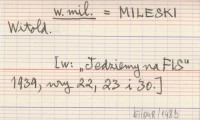 w. mil. = MILESKI
Witold.
[w: „Jedziemy na FIS"
1939, nry 22, 23 i 30.]